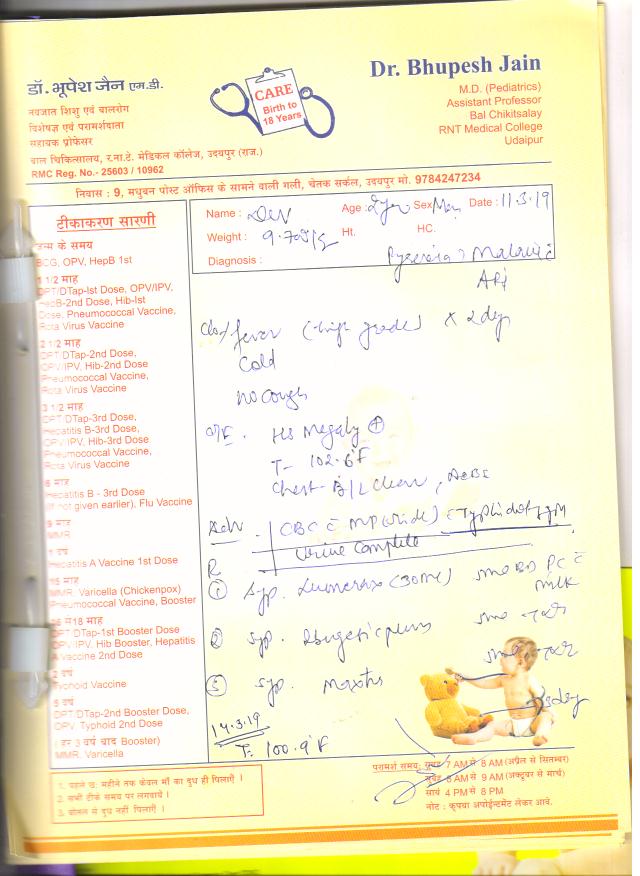 डॉ. भूपेश जैन एम.डी.
नवजात शिशु एवं बालरोग
विशेषज्ञ एवं परामर्शदाता
सहायक प्रोफेसर
बाल चिकित्सालय, र.ना.टे. मेडिकल कॉलेज, उदयपुर (राज.)
RMC Reg. No.- 25603 / 10962
CARE
Birth to
18 Years
Dr. Bhupesh Jain
M.D. (Pediatrics)
Assistant Professor
Bal Chikitsalay
RNT Medical College
Udaipur
निवास : 9, मधुबन पोस्ट ऑफिस के सामने वाली गली, चेतक सर्कल, उदयपुर मो. 9784247234
Name : Dev Age : 2yr Sex Date : 11.3.19
Weight : Ht. HC.
Diagnosis : Pyrexia ? Malaria
टीकाकरण सारणी
जन्म के समय
BCG, OPV, HepB 1st
1 1/2 माह
DPT/DTap-Ist Dose, OPV/IPV,
HepB-2nd Dose, Hib-Ist
Dose, Pneumococcal Vaccine,
Rota Virus Vaccine
2 1/2 माह
DPT/DTap-2nd Dose,
OPV/IPV, Hib-2nd Dose
Pneumococcal Vaccine,
Rota Virus Vaccine
3 1/2 माह
DPT DTap-3rd Dose,
Hepatitis B-3rd Dose,
OPV/IPV, Hib-3rd Dose
Pneumococcal Vaccine,
Rota Virus Vaccine
6 माह
Hepatitis B - 3rd Dose
(If not given earlier), Flu Vaccine
9 माह
MMR
1 वर्ष
Hepatitis A Vaccine 1st Dose
15 माह
MMR, Varicella (Chickenpox)
Pneumococcal Vaccine, Booster
16 से 18 माह
DPT/DTap-1st Booster Dose
OPV-IPV, Hib Booster, Hepatitis
A Vaccine 2nd Dose
2 वर्ष
Typhoid Vaccine
5 वर्ष
DPT/DTap-2nd Booster Dose,
OPV, Typhoid 2nd Dose
(हर 3 वर्ष बाद Booster)
MMR, Varicella
c/o fever (high grade) x 2 day
Cold
no cough
O/E. HS Megaly +
T- 102.6°F
Chest B/L Clear, AEBE
Adv. CBC c MP (slide) c Typhidot IgM
Urine Complete
R
① Syp. Lumerax (30ml) 5ml BD PC c
milk
② Syp.
③ Syp.
14.3.19
T- 100.9°F
1. पहले छः महीने तक केवल माँ का दूध ही पिलाऐं ।
2. सभी टीके समय पर लगवायें ।
3. बोतल से दूध नहीं पिलाऐं ।
परामर्श समय: सुबह 7 AM से 8 AM (अप्रैल से सितम्बर)
सुबह 8 AM से 9 AM (अक्टूबर से मार्च)
सायं 4 PM से 8 PM
नोट : कृपया अपोईन्टमेंट लेकर आवे.